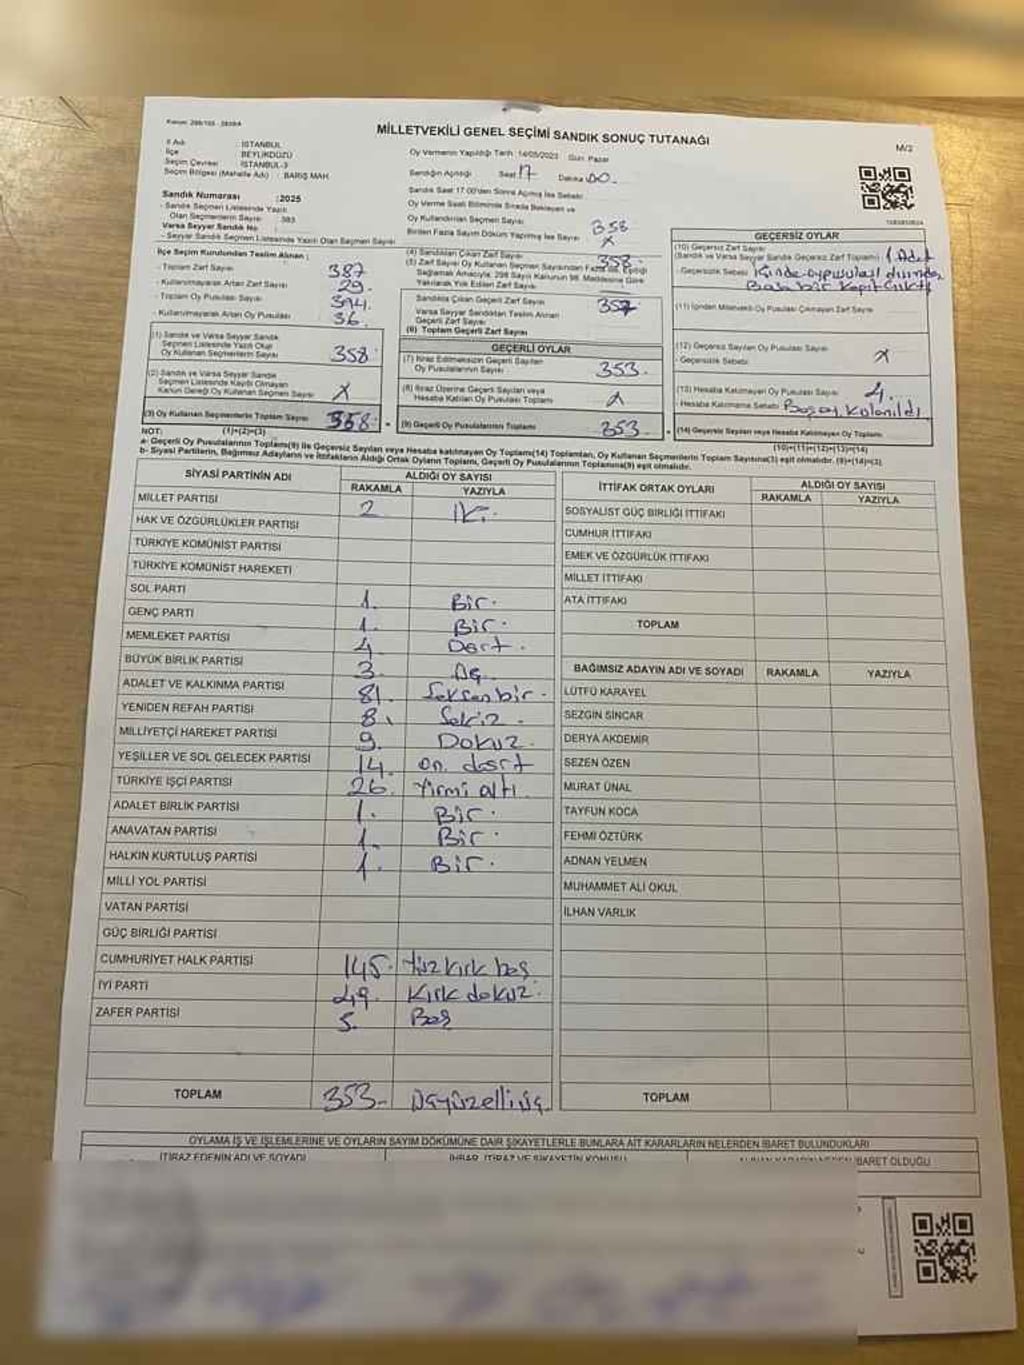 MİLLETVEKİLİ GENEL SEÇİMİ SANDIK SONUÇ TUTANAĞI
M/2
İl Adı : İSTANBUL
İlçe : BEYLİKDÜZÜ
Seçim Çevresi : İSTANBUL-3
Seçim Bölgesi (Mahalle Adı) : BARIŞ MAH.
Sandık Numarası : 2025
- Sandık Seçmen Listesinde Yazılı
Olan Seçmenlerin Sayısı : 383
Varsa Seyyar Sandık No
- Seyyar Sandık Seçmen Listesinde Yazılı Olan Seçmen Sayısı
İlçe Seçim Kurulundan Teslim Alınan :
- Toplam Zarf Sayısı 387
- Kullanılmayarak Artan Zarf Sayısı 29.
- Toplam Oy Pusulası Sayısı 394.
- Kullanılmayarak Artan Oy Pusulası 36.
(1) Sandık ve Varsa Seyyar Sandık
Seçmen Listesinde Yazılı Olup
Oy Kullanan Seçmenlerin Sayısı 358
(2) Sandık ve Varsa Seyyar Sandık
Seçmen Listesinde Kayıtlı Olmayan
Kanun Gereği Oy Kullanan Seçmen Sayısı X
(3) Oy Kullanan Seçmenlerin Toplam Sayısı 358.
(1)+(2)=(3)
Oy Vermenin Yapıldığı Tarih : 14/05/2023 Gün: Pazar
Sandığın Açıldığı Saat 17 Dakika 00.
Sandık Saat 17.00'den Sonra Açılmış İse Sebebi:
Oy Verme Saati Bitiminde Sırada Bekleyen ve
Oy Kullandırılan Seçmen Sayısı 358
Birden Fazla Sayım Döküm Yapılmış İse Sayısı X
(4) Sandıktan Çıkan Zarf Sayısı 358.
(5) Zarf Sayısı Oy Kullanan Seçmen Sayısından Fazla ise, Eşitliği
Sağlamak Amacıyla, 298 Sayılı Kanunun 98. Maddesine Göre
Yakılarak Yok Edilen Zarf Sayısı
Sandıkta Çıkan Geçerli Zarf Sayısı 357
Varsa Seyyar Sandıktan Teslim Alınan
Geçerli Zarf Sayısı
(6) Toplam Geçerli Zarf Sayısı
GEÇERLİ OYLAR
(7) İtiraz Edilmeksizin Geçerli Sayılan
Oy Pusulalarının Sayısı 353.
(8) İtiraz Üzerine Geçerli Sayılan veya
Hesaba Katılan Oy Pusulası Toplamı X
(9) Geçerli Oy Pusulalarının Toplamı 353.
GEÇERSİZ OYLAR
(10) Geçersiz Zarf Sayısı
(Sandık ve Varsa Seyyar Sandık Geçersiz Zarf Toplamı) 1 Adet
- Geçersizlik Sebebi
(11) İçinden Milletvekili Oy Pusulası Çıkmayan Zarf Sayısı
(12) Geçersiz Sayılan Oy Pusulası Sayısı X
- Geçersizlik Sebebi
(13) Hesaba Katılmayan Oy Pusulası Sayısı 4.
- Hesaba Katılmama Sebebi Boş oy
(14) Geçersiz Sayılan veya Hesaba Katılmayan Oy Toplamı
(10)+(11)+(12)+(13)=(14)
NOT:
a- Geçerli Oy Pusulalarının Toplamı(9) ile Geçersiz Sayılan veya Hesaba katılmayan Oy Toplamı(14) Toplamları, Oy Kullanan Seçmenlerin Toplam Sayısına(3) eşit olmalıdır. (9)+(14)=(3)
b- Siyasi Partilerin, Bağımsız Adayların ve İttifakların Aldığı Ortak Oyların Toplamı, Geçerli Oy Pusulalarının Toplamına(9) eşit olmalıdır.
SİYASİ PARTİNİN ADI ALDIĞI OY SAYISI
RAKAMLA YAZIYLA
MİLLET PARTİSİ 2 İki.
HAK VE ÖZGÜRLÜKLER PARTİSİ
TÜRKİYE KOMÜNİST PARTİSİ
TÜRKİYE KOMÜNİST HAREKETİ
SOL PARTİ 1. Bir.
GENÇ PARTİ 1. Bir.
MEMLEKET PARTİSİ 4. Dört.
BÜYÜK BİRLİK PARTİSİ 3. Üç.
ADALET VE KALKINMA PARTİSİ 81. Seksen bir.
YENİDEN REFAH PARTİSİ 8. Sekiz.
MİLLİYETÇİ HAREKET PARTİSİ 9. Dokuz.
YEŞİLLER VE SOL GELECEK PARTİSİ 14. on dört
TÜRKİYE İŞÇİ PARTİSİ 26. Yirmi altı.
ADALET BİRLİK PARTİSİ 1. Bir.
ANAVATAN PARTİSİ 1. Bir.
HALKIN KURTULUŞ PARTİSİ 1. Bir.
MİLLİ YOL PARTİSİ
VATAN PARTİSİ
GÜÇ BİRLİĞİ PARTİSİ
CUMHURİYET HALK PARTİSİ 145. Yüz kırk beş
İYİ PARTİ 49. Kırk dokuz.
ZAFER PARTİSİ 5. Beş
TOPLAM 353. Üçyüzelliüç.
İTTİFAK ORTAK OYLARI ALDIĞI OY SAYISI
RAKAMLA YAZIYLA
SOSYALİST GÜÇ BİRLİĞİ İTTİFAKI
CUMHUR İTTİFAKI
EMEK VE ÖZGÜRLÜK İTTİFAKI
MİLLET İTTİFAKI
ATA İTTİFAKI
TOPLAM
BAĞIMSIZ ADAYIN ADI VE SOYADI RAKAMLA YAZIYLA
LÜTFÜ KARAYEL
SEZGİN SİNCAR
DERYA AKDEMİR
SEZEN ÖZEN
MURAT ÜNAL
TAYFUN KOCA
FEHMİ ÖZTÜRK
ADNAN YELMEN
MUHAMMET ALİ OKUL
İLHAN VARLIK
TOPLAM
OYLAMA İŞ VE İŞLEMLERİNE VE OYLARIN SAYIM DÖKÜMÜNE DAİR ŞİKAYETLERLE BUNLARA AİT KARARLARIN NELERDEN İBARET BULUNDUKLARI
İTİRAZ EDENİN ADI VE SOYADI İHBAR, İTİRAZ VE ŞİKAYETİN KONUSU İBARET OLDUĞU